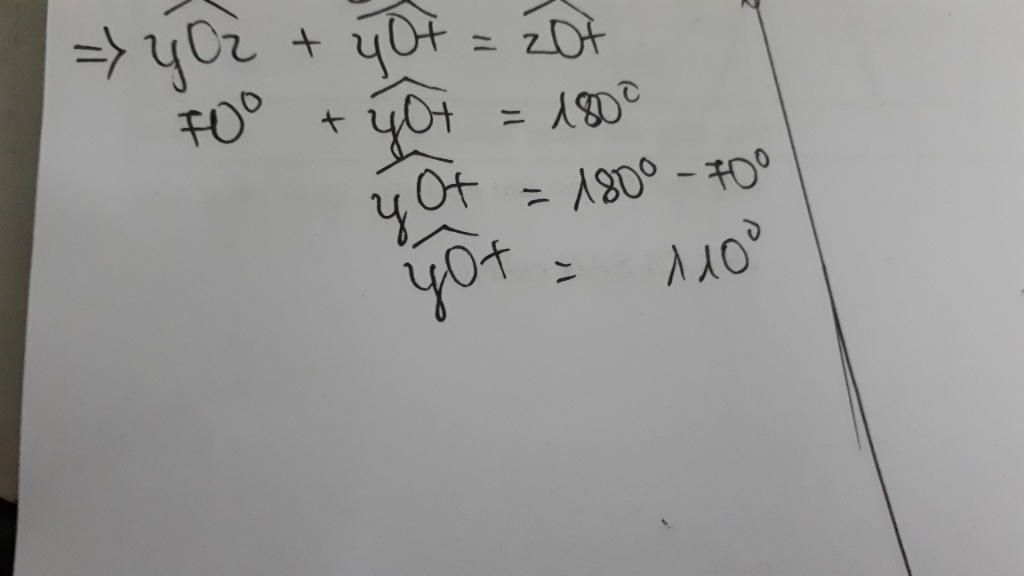 => yOz + yOt = zOt
70° + yOt = 180°
yOt = 180° - 70°
yOt = 110°